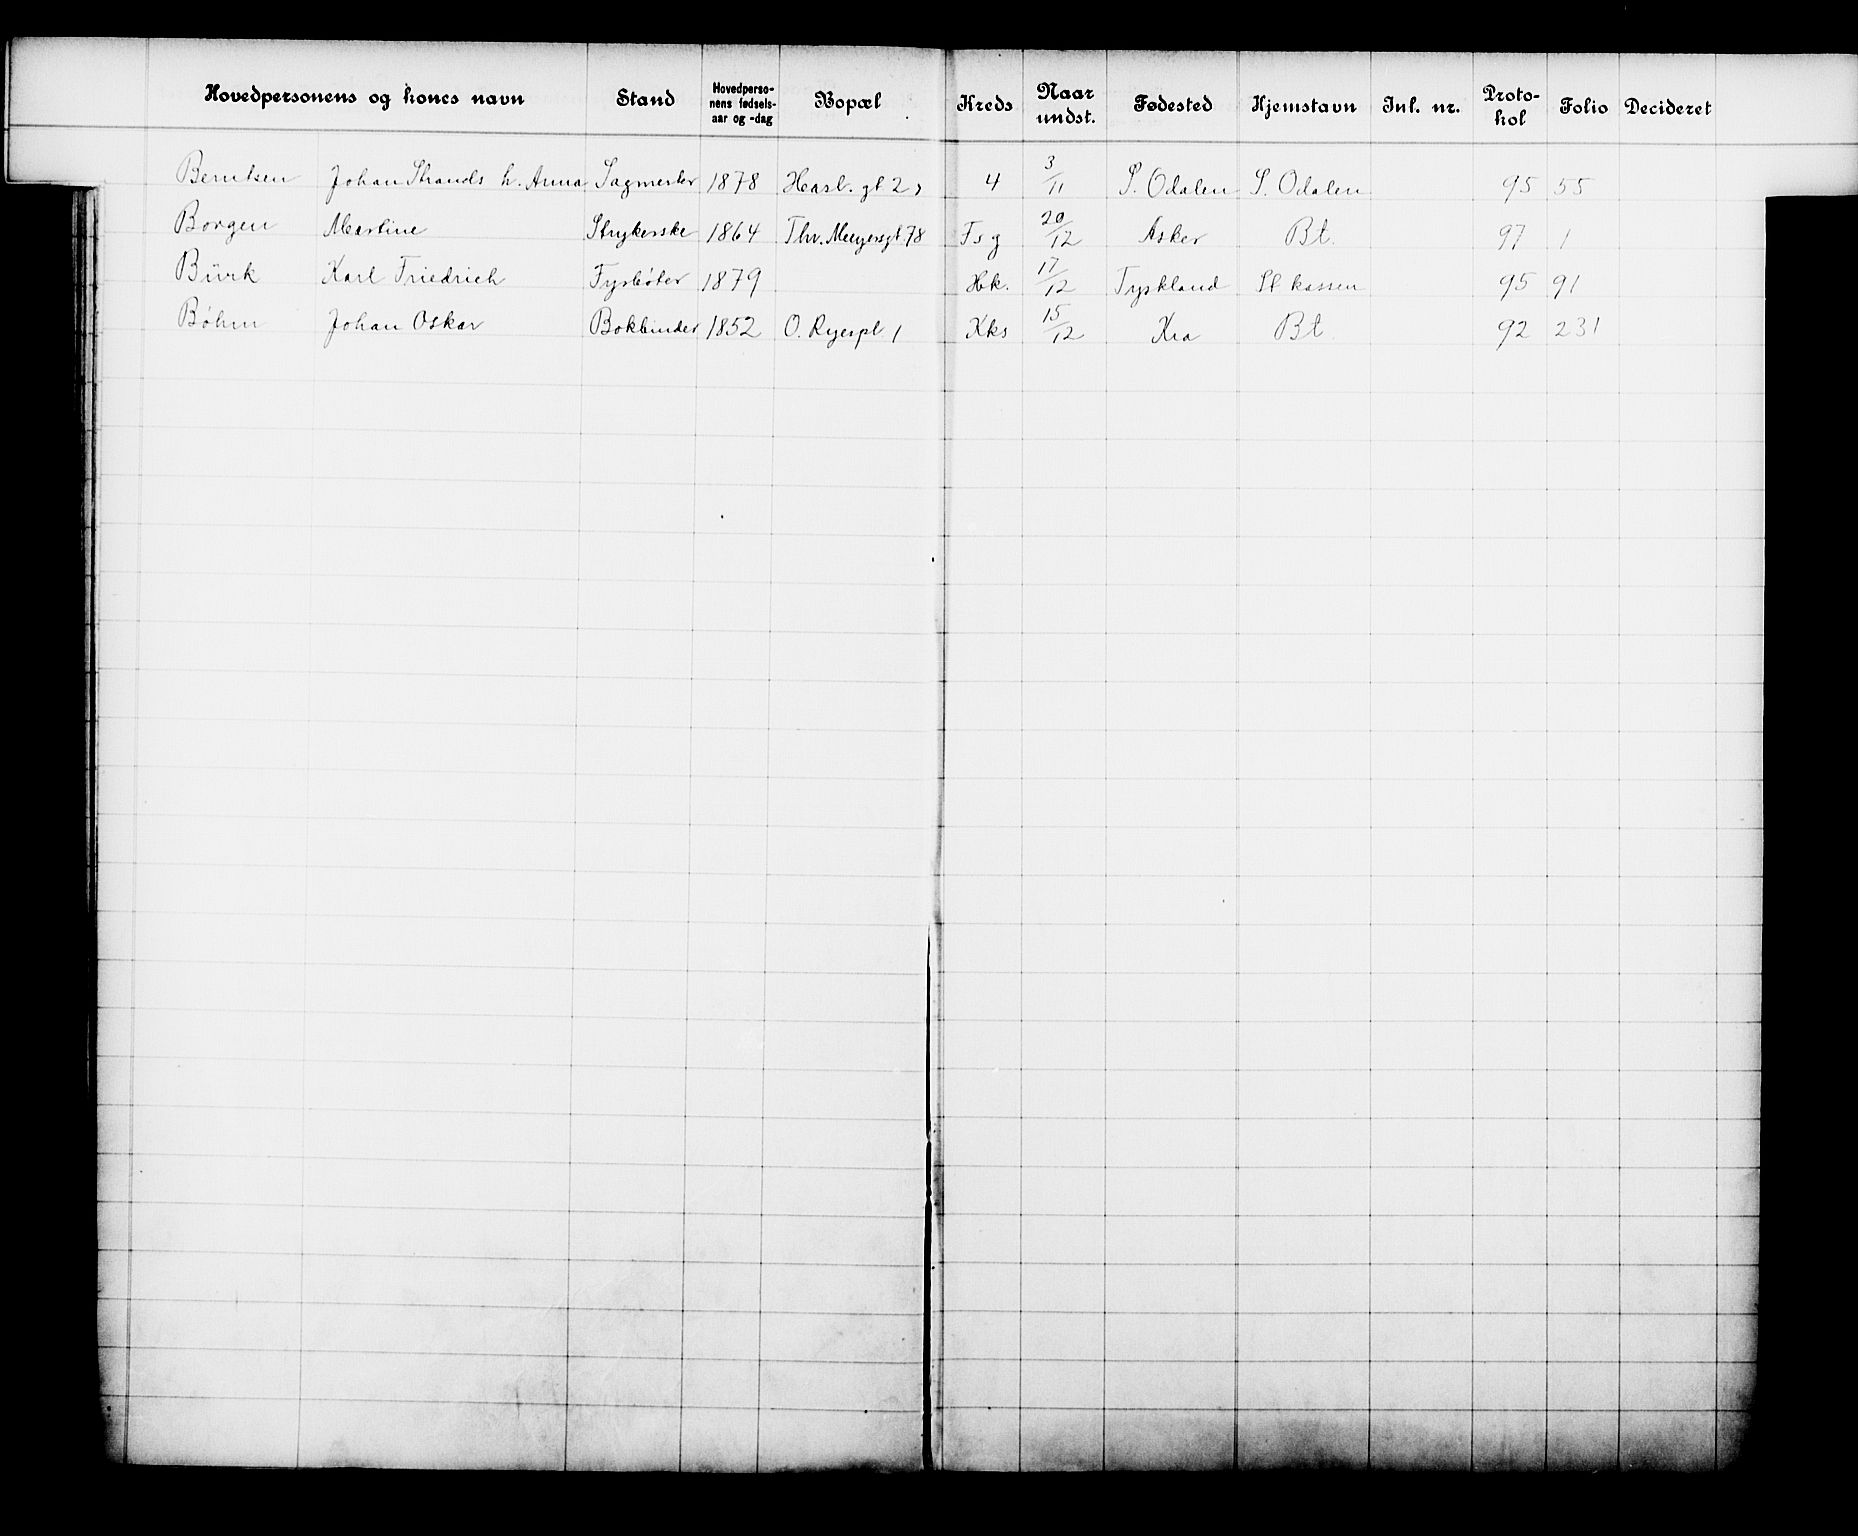 Hovedpersonens og kones navn Stand Hovedperso-nens fødsels-aar og -dag Bopæl Kreds Naar undst. Fødested Hjemstavn Inl. nr. Proto-kol Folio Decideret
Berntsen Johan Strands h. Anna Sagmester 1878 Hasl. gt 2 4 3/11 S. Odalen S. Odalen 95 55
Borgen Martine Strykerske 1864 Thv. Meyersgt 78 Fsg 20/12 Asker Bt. 97 1
Bürk Karl Friedrich Fyrbøter 1879 Hk. 17/12 Tyskland St kassen 95 91
Bøhm Johan Oskar Bokbinder 1852 O. Ryespl. 1 Kks 15/12 Kra Bt. 92 231